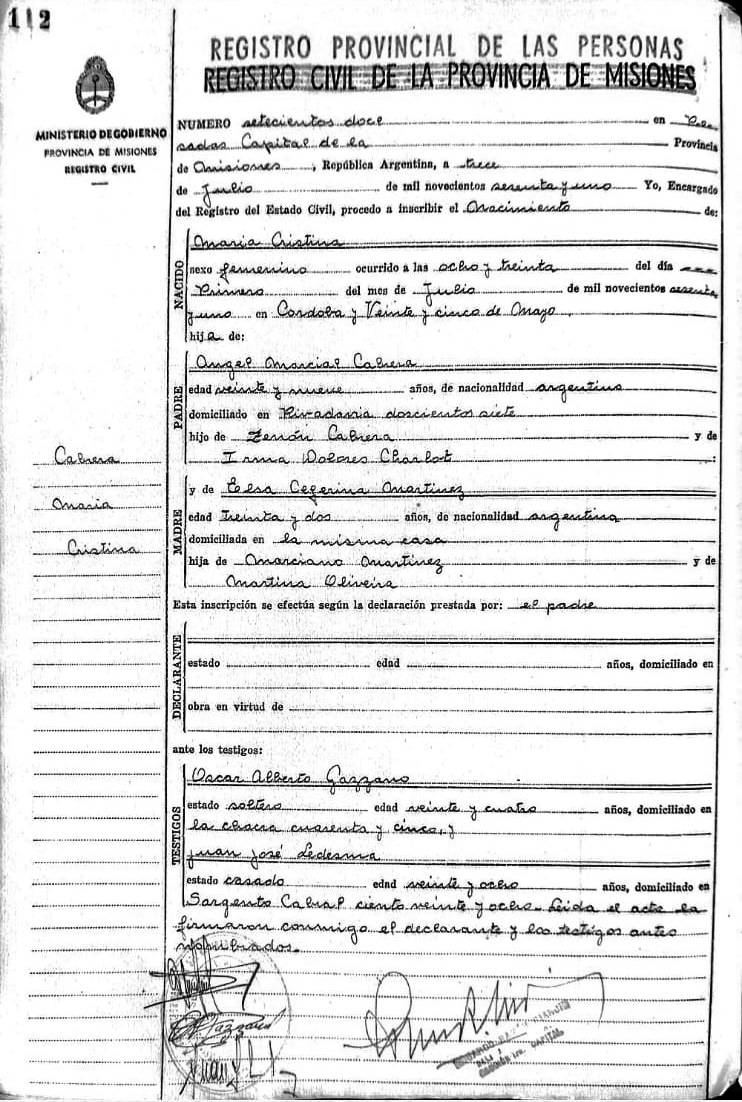 112
REGISTRO PROVINCIAL DE LAS PERSONAS
REGISTRO CIVIL DE LA PROVINCIA DE MISIONES
MINISTERIO DE GOBIERNO
PROVINCIA DE MISIONES
REGISTRO CIVIL
NUMERO setecientos doce en Po-
sadas Capital de la Provincia
de Misiones, República Argentina, a trece
de Julio de mil novecientos sesenta y uno Yo, Encargado
del Registro del Estado Civil, procedo a inscribir el Nacimiento de:
NACIDO
Maria Cristina
sexo femenino ocurrido a las ocho y treinta del día
Primero del mes de Julio de mil novecientos sesenta
y uno en Cordoba y Veinte y cinco de Mayo.
hija de:
PADRE
Angel Marcial Cabrera
edad veinte y nueve años, de nacionalidad argentino
domiciliado en Rivadavia doscientos siete
hijo de Zenón Cabrera y de
Irma Dolores Charlot :
Cabrera
Maria
Cristina
MADRE
y de Elsa Ceferina Martinez
edad Treinta y dos años, de nacionalidad argentina
domiciliada en la misma casa
hija de Marciano Martinez y de
Martina Oliveira
Esta inscripción se efectúa según la declaración prestada por: el padre
DECLARANTE
estado edad años, domiciliado en
obra en virtud de
ante los testigos:
TESTIGOS
Oscar Alberto Gazzano
estado soltero edad veinte y cuatro años, domiciliado en
la chacra cuarenta y cinco, y
Juan José Ledesma
estado casado edad veinte y ocho años, domiciliado en
Sargento Cabral ciento veinte y ocho. Leida el acta la
firmaron conmigo el declarante y los testigos antes
nombrados.